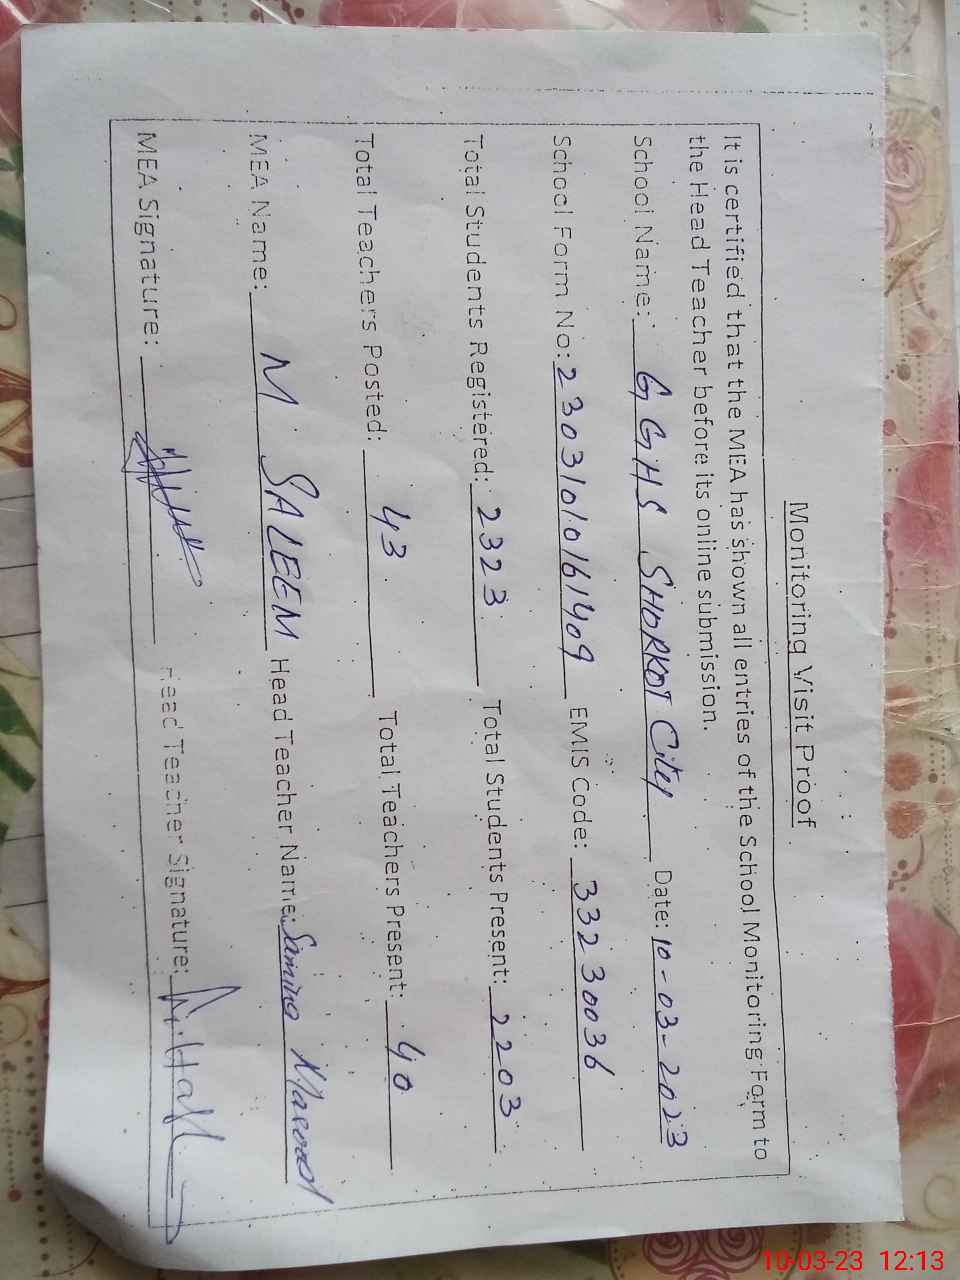 Monitoring Visit Proof
It is certified that the MEA has shown all entries of the School Monitoring Form to
the Head Teacher before its online submission.
School Name: GGHS SHORKOT City Date: 10-03-2023
School Form No: 23031010161409 EMIS Code: 33230036
Total Students Registered: 2323 Total Students Present: 2203
Total Teachers Posted: 43 Total Teachers Present: 40
MEA Name: M SALEEM Head Teacher Name: Samina
MEA Signature: Head Teacher Signature:
10-03-23 12:13